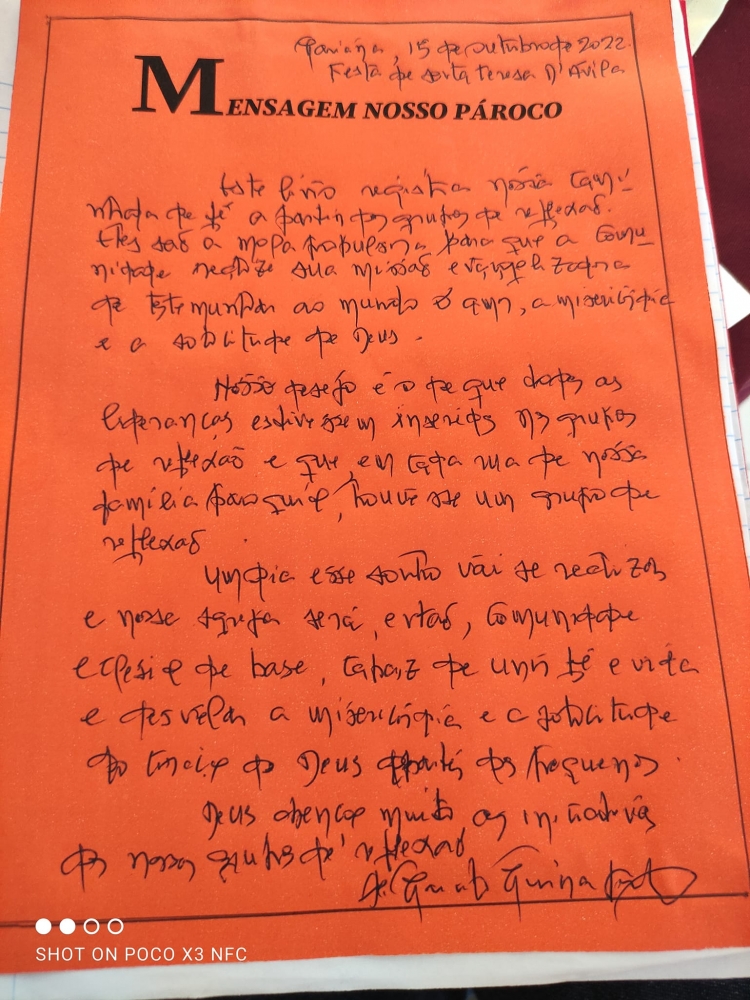 15 de outubro de 2022.
Festa de santa Teresa D'Ávila
MENSAGEM NOSSO PÁROCO
Este livro registra nossa cami-
nhada de fé a partir dos grupos de reflexão.
Eles são a mola propulsora para que a comu-
nidade realize sua missão evangelizadora
de testemunhar ao mundo o amor, a misericórdia
e a solicitude de Deus.
Nosso desejo é o de que todas as
lideranças estivessem inseridas nos grupos
de reflexão e que, em cada rua de nossa
família paroquial, houvesse um grupo de
reflexão.
Um dia esse sonho vai se realizar
e nossa Igreja será, então, comunidade
eclesial de base, capaz de unir fé e vida
e desvelar a misericórdia e a solicitude
do coração de Deus dos pequenos.
Deus abençoe muito as iniciativas
dos nossos grupos de reflexão
SHOT ON POCO X3 NFC